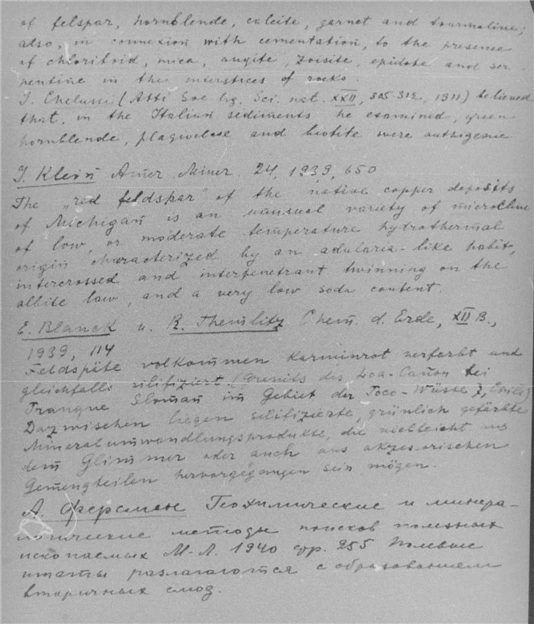 of felspar, hornblende, calcite, garnet and tourmaline;
also, in connexion with cementation, to the presence
of chloritoid, mica, augite, zoisite, epidote and ser
pentine in the interstices of rocks.
I. Chelussi (Atti Soc. Sci. nat. XXII, 305-312, 1911) believed
that, in the Italian sediments he examined, green
hornblende, plagioclase and biotite were authigenic
I. Klein Amer. Miner. 24, 1939, 650
The „red feldspar" of the native copper deposits
of Michigan is an unusual variety of microcline
of low, or moderate temperature hydrothermal
origin characterized by an adularia-like habit,
intercrossed and interpenetrant twinning on the
albite law, and a very low soda content.
E. Blanck u. R. Themlitz Chem. d. Erde, XII B.,
1939, 114
Feldspäte volkommen karminrot verfärbt und
gleichfalls silifiziert des Loa-Cañon bei
Tranque Sloman im Gebiet der Toco-Wüste, Chile)
Dazwischen liegen silifizierte, grünlich gefärbte
Mineralumwandlungsprodukte, die vielleicht aus
dem Glimmer oder auch aus akzessorischen
Gemengteilen hervorgegangen sein mögen.
А. Ферсман Геохимические и минера-
логические методы поисков полезных
ископаемых М.Л. 1940 стр. 255 Полевые
шпаты разлагаются с образованием
вторичных слюд.